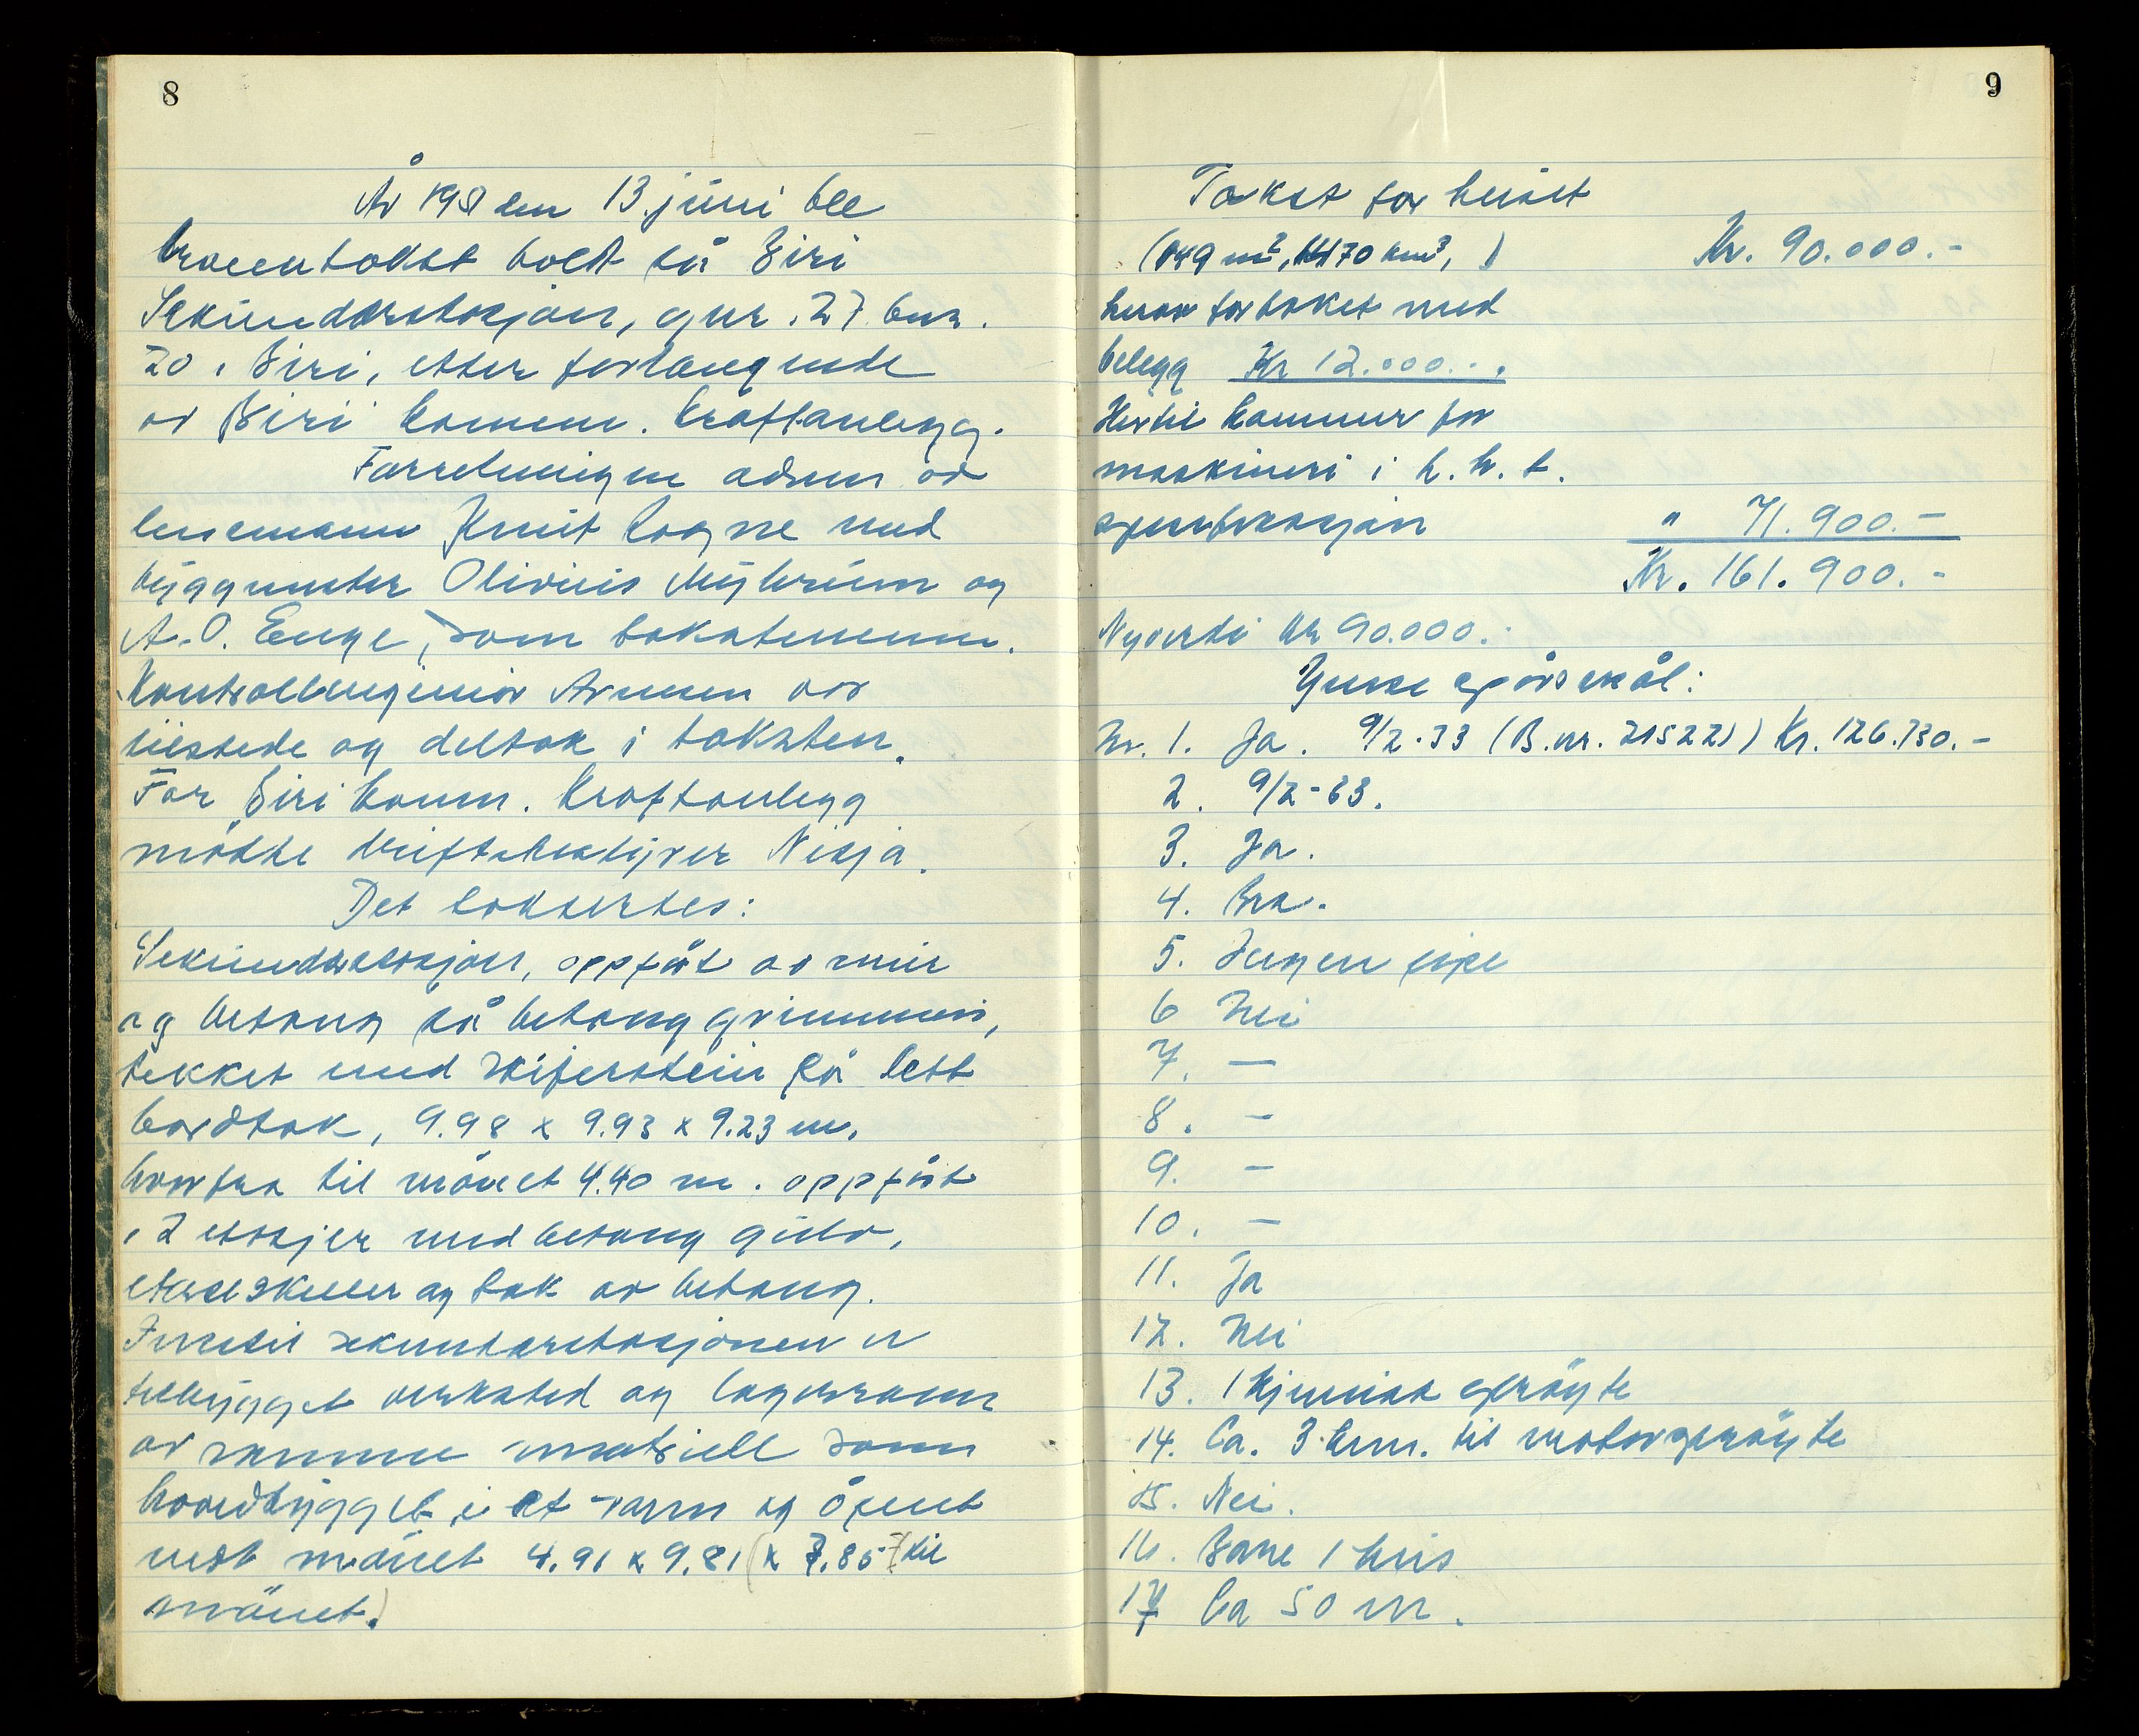 8
År 1951 den 13. juni ble
branntakst holdt på Biri
Sekundærstasjon, gnr. 27 bnr.
20 i Biri, etter forlangende
av Biri komm. kraftanlegg.
Forretningen adm. av
lensmann Knut Rogne med
byggmester Olivius Myhrum og
A. O. Enge, som takstmenn.
Kontrollingeniør Arnesen var
tilstede og deltok i taksten.
For Biri komm. Kraftanlegg
møtte driftsbestyrer Nisja.
Det takstertes:
Sekundærstasjon, oppført av mur
og betong på betonggrunnmur,
tekket med skiferstein på tett
bordtak, 9.98 x 9.93 x 9.23 m.
herfra til mønet 4.40 m. oppført
i 2 etasjer med betong gulv,
etasjeskiller og tak av betong.
Inntil sekundærstasjonen er
tilbygget verksted og lagerrom
av samme matriell som
hovedbygget i et rom og åpent
mot mønet 4.91 x 9.81 (x 7.85 til
mønet.)
9
Takst for huset
(149 m², 1470 km³, ) Kr. 90.000.-
herav for taket med
belegg Kr 12.000.-.
Hertil kommer for
maskineri i h. h. t.
spesifikasjon " 71.900.-
Kr. 161.900.-
Nyverdi kr 90.000.-
Ymse spørsmål:
Nr. 1. Ja. 9/2-33 (B.nr. 215221) Kr. 126.730.-
2. 9/2-33.
3. Ja.
4. Bra.
5. Ingen pipe
6 Nei
7. —
8. —
9. —
10. —
11. Ja
12. Nei
13. 1 kjemisk sprøyte
14. Ca. 3 km. til motorsprøyte
15. Nei.
16. Bare 1 hus
17 Ca 50 m.